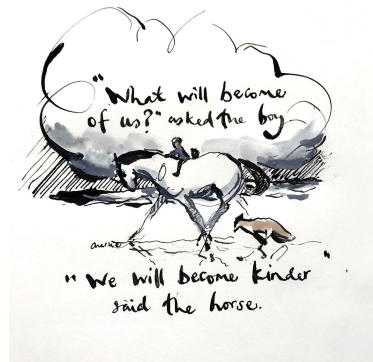 "What will become
of us?" asked the boy
"We will become kinder"
said the horse.